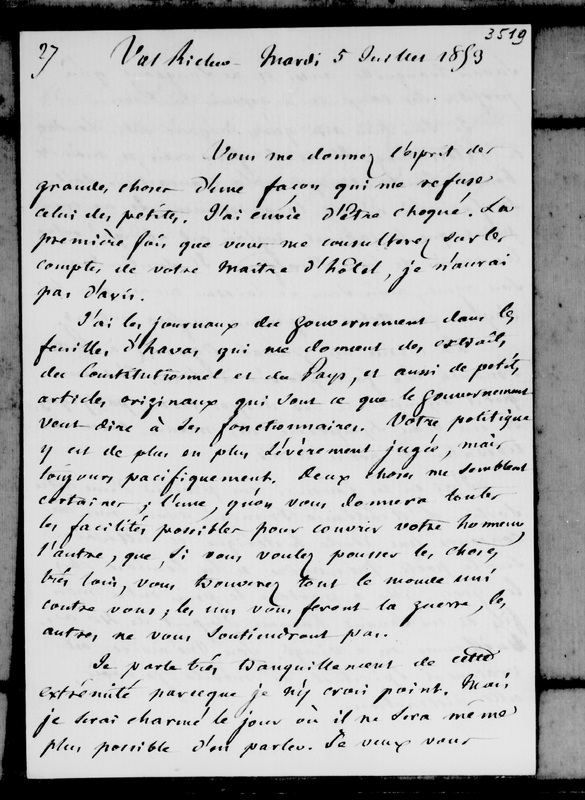 3519
27 Val Richer - Mardi 5 Juillet 1853
Vous me donnez l'esprit des
grandes choses d'une façon qui me refuse
celui des petites. J'ai envie d'être choqué. La
première fois que vous me consulterez sur les
comptes de votre maître d'hôtel, je n'aurai
pas d'avis.
J'ai les journaux du gouvernement dans les
feuilles d'havas qui me donnent des extraits
du Constitutionnel et du Pays, et aussi de petits
articles originaux qui sont ce que le gouvernement
veut dire à ses fonctionnaires. Votre politique
y est de plus en plus sévèrement jugée, mais
toujours pacifiquement. Deux choses me semblent
certaines ; l'une, qu'on vous donnera toutes
les facilités possibles pour couvrir votre honneur,
l'autre, que, si vous voulez pousser les choses
très loin, vous trouverez tout le monde uni
contre vous ; les uns vous feront la guerre, les
autres ne vous soutiendront pas.
Je parle très tranquillement de cette
extrémité parceque je n'y crois point. Mais
je serai charmé le jour où il ne sera même
plus possible d'en parler. Je veux vous